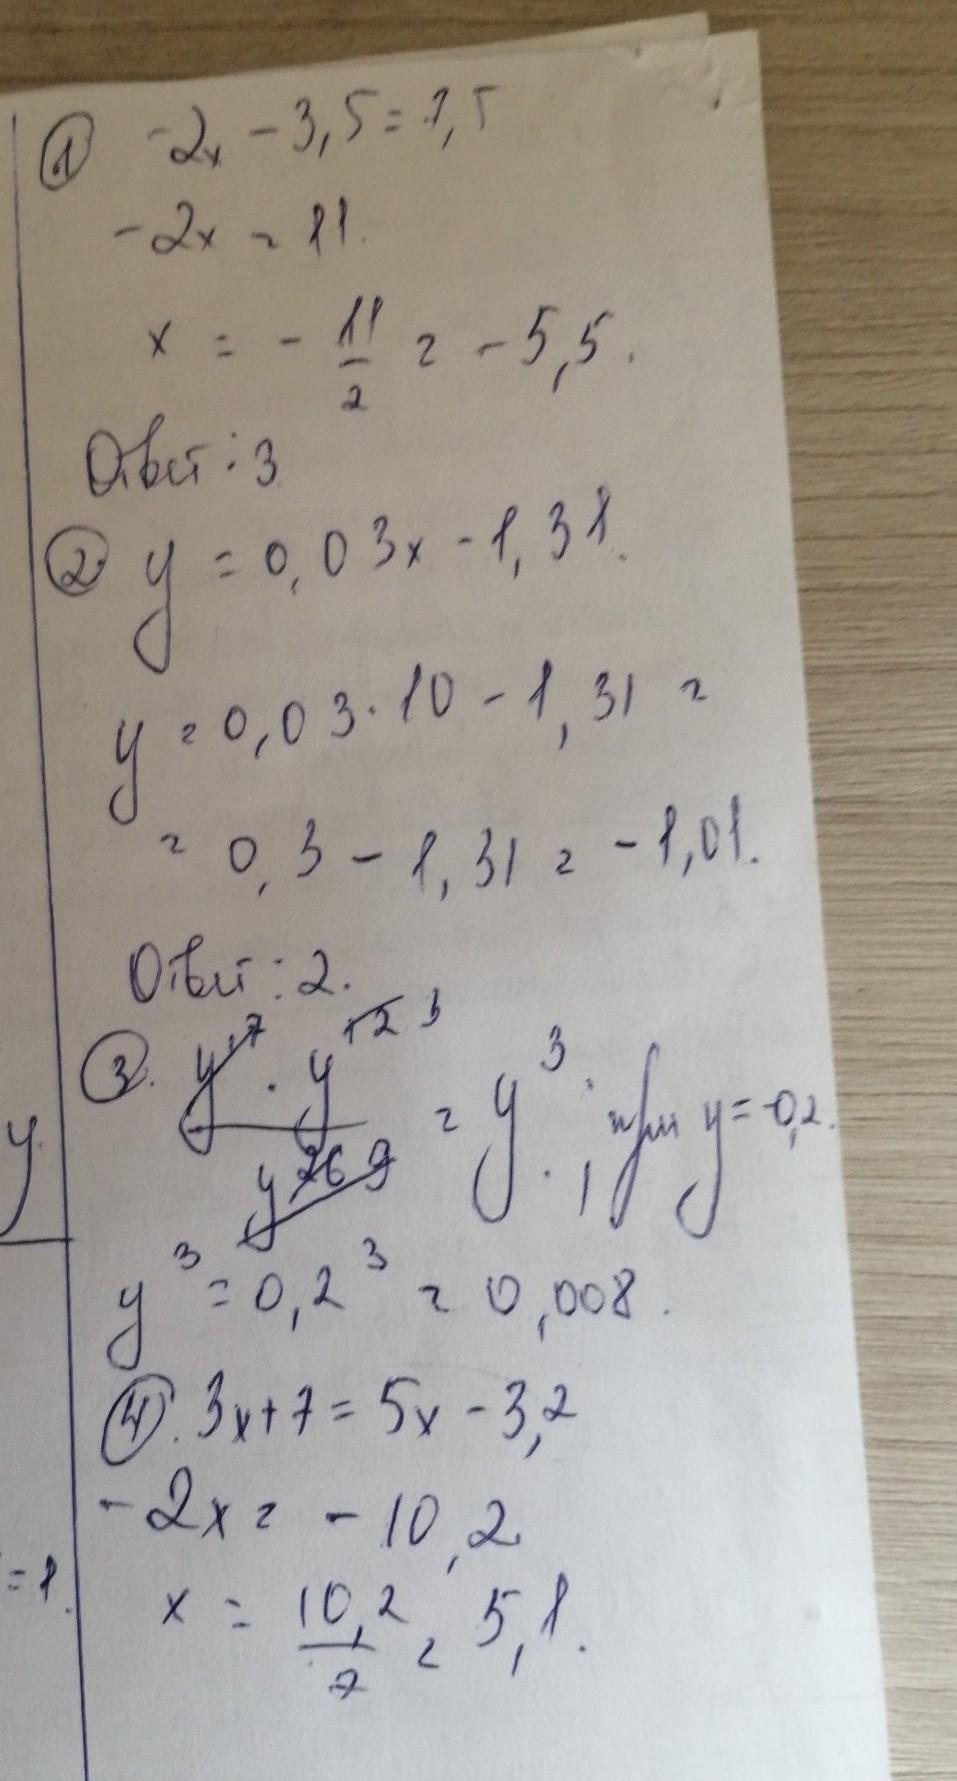 ① -2x - 3,5 = 7,5
-2x = 11.
x = - 11/2 = -5,5.
Ответ: 3
② y = 0,03x - 1,31.
y = 0,03 · 10 - 1,31 =
= 0,3 - 1,31 = -1,01.
Ответ: 2.
③. = y³; при y = -0,2.
y³ = 0,2³ = 0,008.
④. 3x + 7 = 5x - 3,2
-2x = -10,2
x = 10,2/2 = 5,1.
y.
= 1.